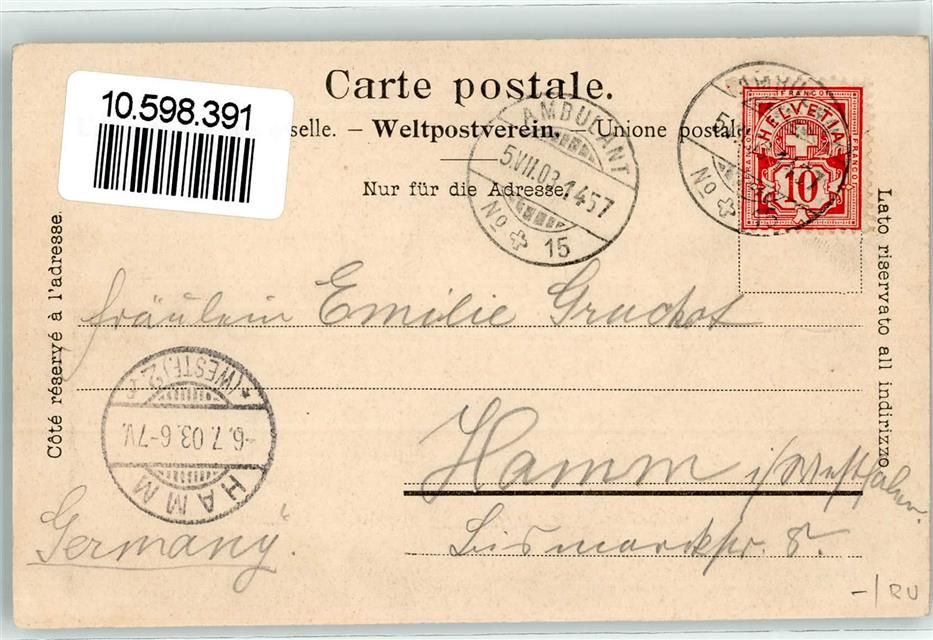 Carte postale.
10.598.391
selle. – Weltpostverein. – Unione postale
Nur für die Adresse.
AMBULANT
5.VII.03.1457
No 15
AMBULANT
No 15
FRANCO
FRANCO
FRANCO
HELVETIA
10
Côté réservé à l'adresse.
Lato riservato all indirizzo.
Fräulein Emilie Gruchot
Hamm i/Westfalen.
Bismarckstr. 8.
Germany.
HAMM
-6.7.03.6-7V.
*(WESTF.)2
-/RU